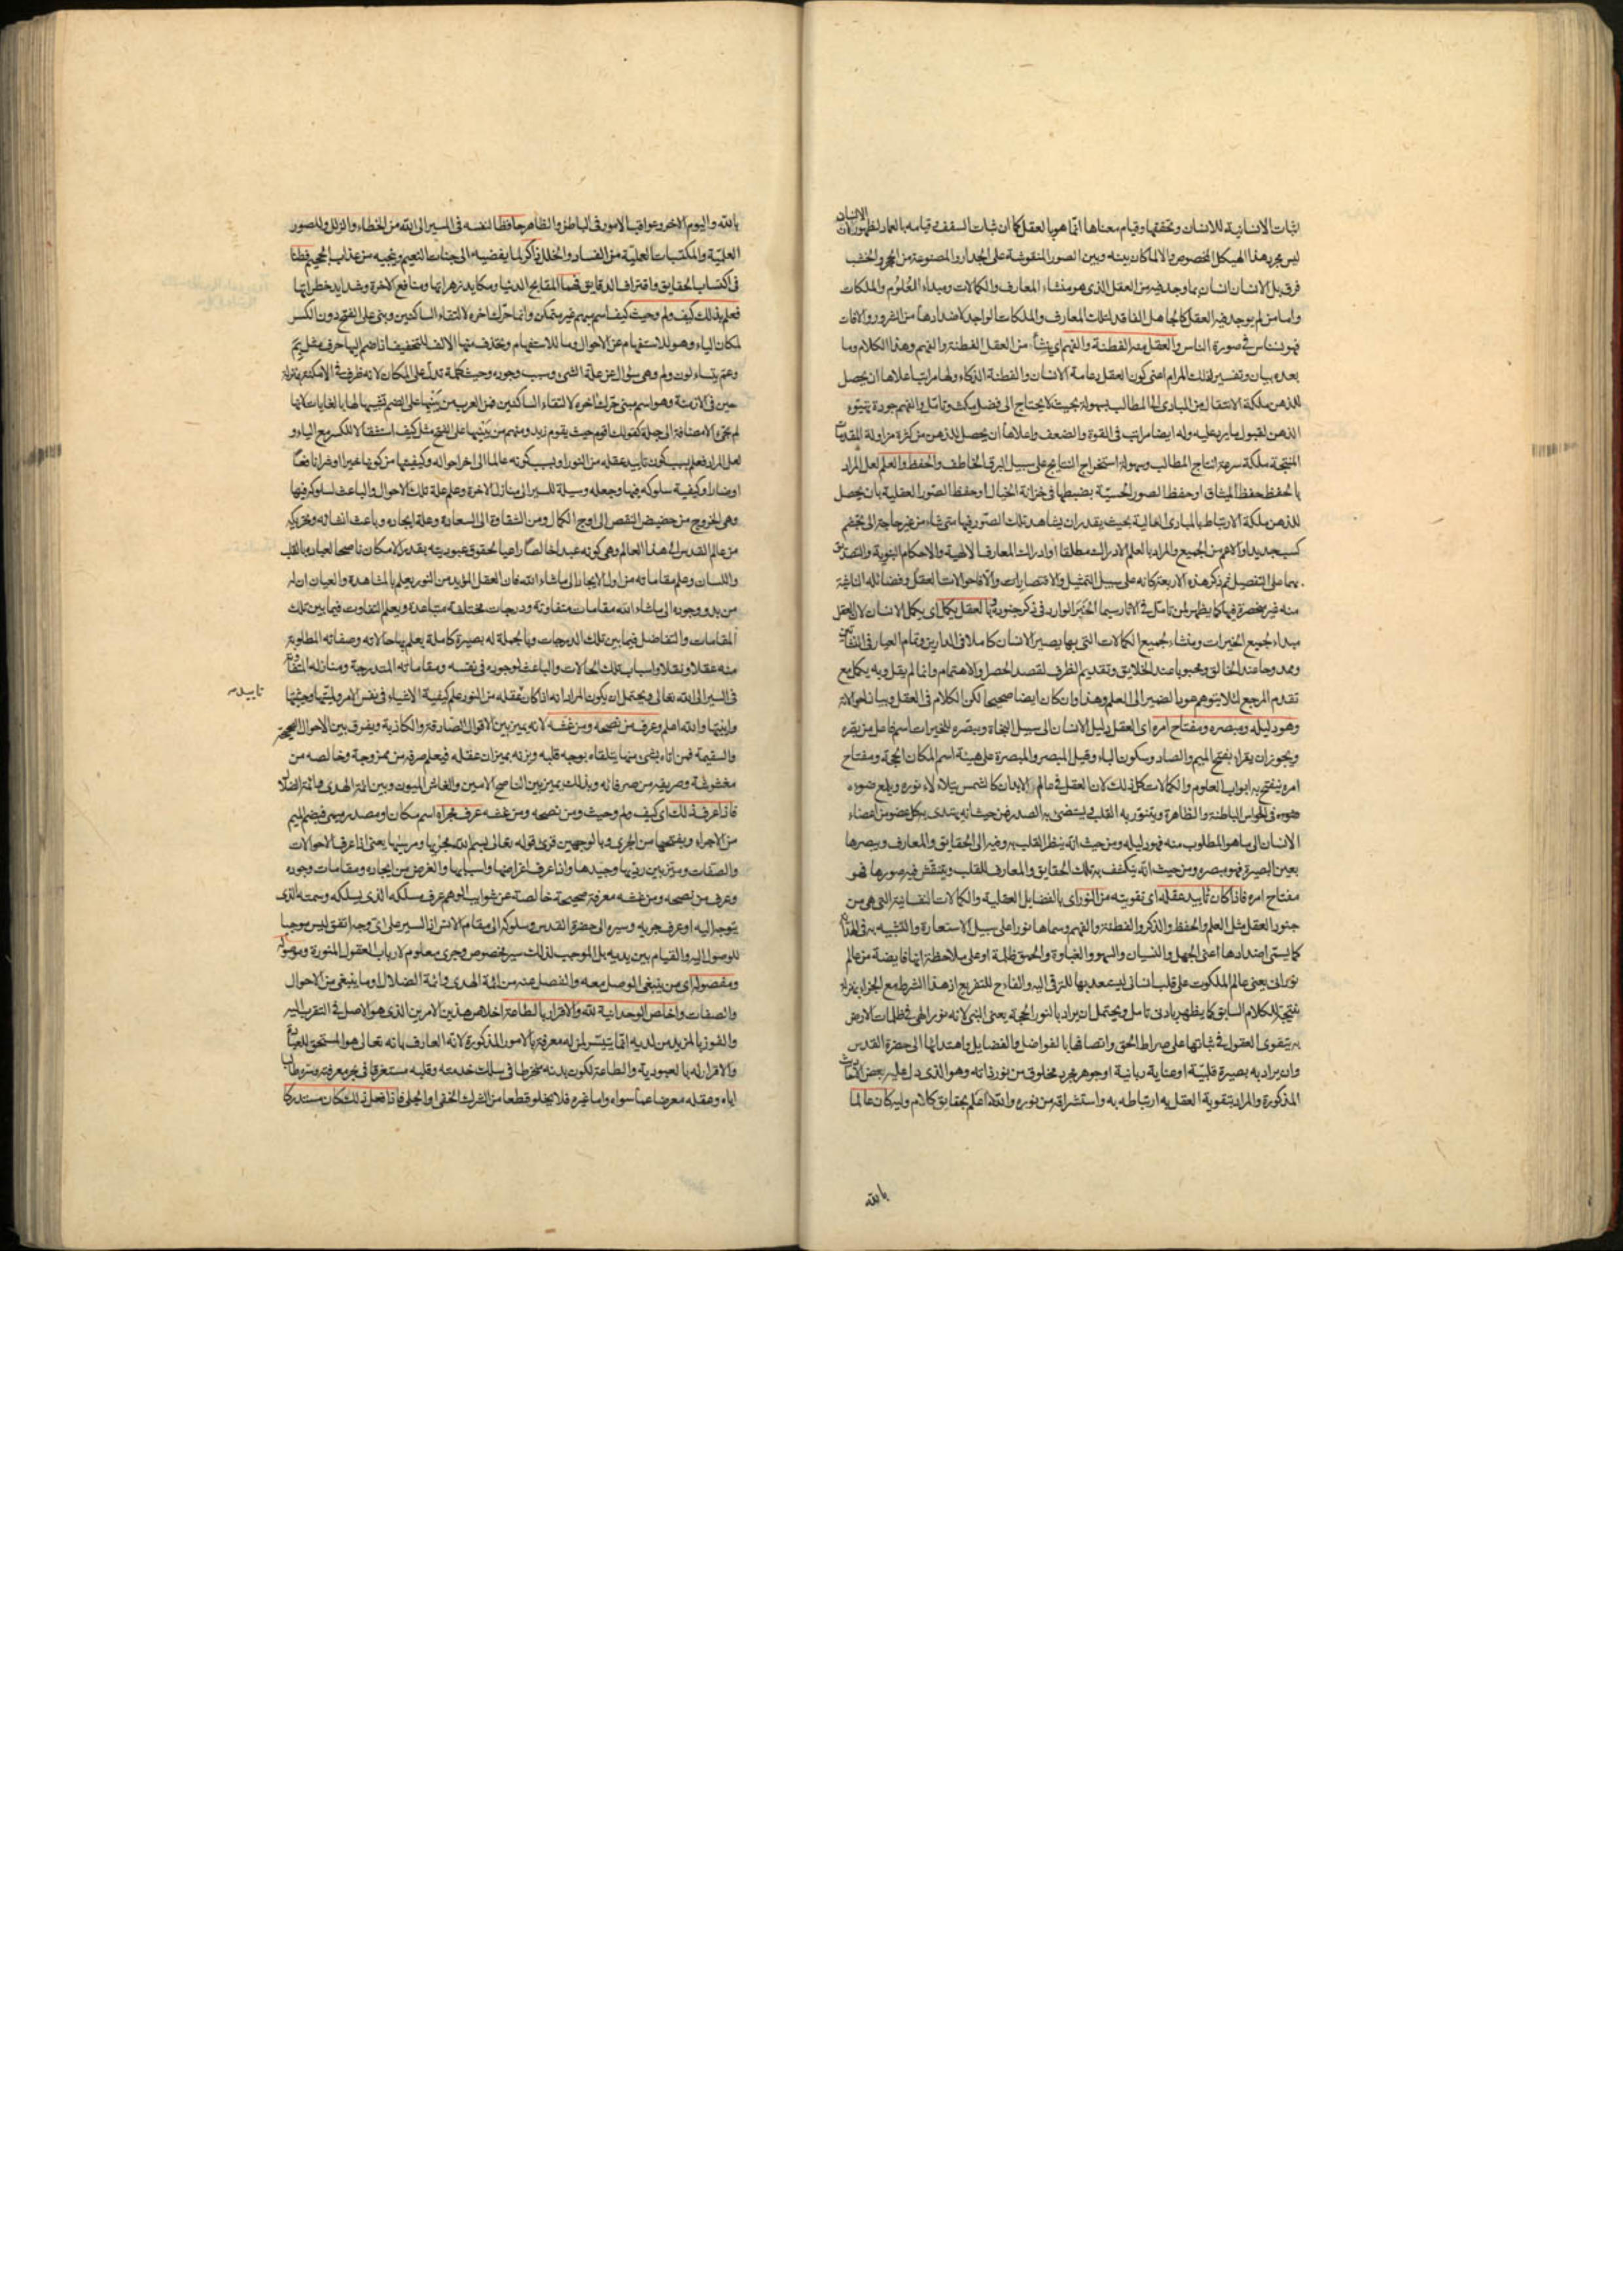 اثبات الانسانية للانسان وتحققها وقيام معناها انما هو بالعقل كما ان ثبات السقف وقيامه بالعماد لظهور ان الانسان
ليس مجرد هذا الهيكل المخصوص والا لما كان بينه وبين الصور المنقوشة على الجدار والمصنوعة من الحجر والخشب
فرق بل الانسان انسان بما وجد فيه من العقل الذى هو منشاء المعارف والكمالات ومبداء العلوم والملكات
واما من لم يوجد فيه العقل كالجاهل الفاقد لتلك المعارف والملكات الواجد لاضدادها من الشرور والافات
فهو نسناس فى صورة الناس والعقل منه الفطنة والفهم اى ينشأ من العقل الفطنة والفهم وهذا الكلام وما
بعده بيان وتفسير لذلك المرام اعنى كون العقل دعامة الانسان والفطنة الذكاء ولها مراتب اعلاها ان يحصل
للذهن ملكة الانتقال من المبادى الى المطالب بسهولة بحيث لا يحتاج الى فضل مكث وتامل والفهم جودة تهيؤ
الذهن لقبول ما يرد عليه وله ايضا مراتب فى القوة والضعف واعلاها ان يحصل للذهن من كثرة مزاولة المقدمات
المنتجة ملكة سرعة انتاج المطالب وسهولة استخراج النتايج على سبيل البرق الخاطف والحفظ والعلم لعل المراد
بالحفظ حفظ الميثاق او حفظ الصور الحسية بضبطها فى خزانة الخيال او حفظ الصور العقلية بان يحصل
للذهن ملكة الارتباط بالمبادى العالية بحيث يقدر ان يشاهد تلك الصور فيها متى شاء من غير حاجة الى تجشم
كسب جديد او الاعم من الجميع والمراد بالعلم الادراك مطلقا او ادراك المعارف الالهية والاحكام النبوية والتصديق
بهما على التفصيل ثم ذكر هذه الاربعة كانه على سبيل التمثيل والاقتصار والا فاحوالات العقل وفضائله الناشئة
منه غير منحصرة فيها كما يظهر لمن تامل فى الاثار سيما الخبر الوارد فى ذكر جنوده وبالعقل يكمل اى يكمل الانسان لان العقل
مبداء جميع الخيرات ومنشاء جميع الكمالات التى بها يصير الانسان كاملا فى الدارين وتمام العيار فى النشأتين
وممدوحا عند الخالق ومحبوبا عند الخلايق وتقديم الظرف لقصد الحصر والاهتمام وانما لم يقل وبه يكمل مع
تقدم المرجع لئلا يتوهم عود الضمير الى العلم وهذا وان كان ايضا صحيحا لكن الكلام فى العقل وبيان احواله
وهو دليله ومبصره ومفتاح امره اى العقل دليل الانسان الى سبيل النجاة ومبصره للخيرات اسم فاعل من بصره
ويجوز ان يقراء بفتح الميم والصاد وسكون الباء وقيل المبصر والمبصرة على هيئة اسم المكان الحجة ومفتاح
امره ينفتح به ابواب العلوم والكمالات كل ذلك لان العقل فى عالم الابدان كالشمس يتلألاء نوره ويلمع ضوءه
فى الحواس الباطنة والظاهرة ويتنور به القلب ويستضىء به الصدر فمن حيث انه يهتدى به كل عضو من اعضاء
الانسان الى ما هو المطلوب منه فهو دليله ومن حيث انه ينظر القلب به وفيه الى الحقايق والمعارف ويبصرها
بعين البصيرة فهو مبصره ومن حيث انه ينكشف به تلك الحقايق والمعارف للقلب وينتقش فيه صورها فهو
مفتاح امره فاذا كان تأييد عقله اى تقويته من النور اى بالفضايل العقلية والكمالات النفسانية التى هى من
جنود العقل مثل العلم والحفظ والذكر والفطنة والفهم وسماها نورا على سبيل الاستعارة والتشبيه به فى الاهتداء
كما يسمى اضدادها اعنى الجهل والنسيان والسهو والغباوة والحمق ظلمة او على ملاحظة انها فايضة من عالم
نورانى يعنى عالم الملكوت على قلب انسانى ليستعد بها للترقى اليه والفاء للتفريع اذ هذا الشرط مع الجزاء بمنزلة
نتيجة للكلام السابق كما يظهر بادنى تامل ويحتمل ان يراد بالنور الحجة يعنى النبى لانه نور الهى فى ظلمات الارض
به يتقوى العقول فى ثباتها على صراط الحق واتصافها بالفواضل والفضايل واهتدائها الى حضرة القدس
وان يراد به بصيرة قلبية او عناية ربانية او جوهر مجرد مخلوق من نور ذاته وهو الذى دل عليه بعض الاحاديث
المذكورة والمراد بتقوية العقل به ارتباطه به واستشراقه من نوره والله اعلم بحقايق كلام وليه كان عالما
بالله
بالله واليوم الاخر وعواقب الامور فى الباطن والظاهر حافظا لنفسه فى السير الى الله من الخطاء والزلل وللصور
العلمية والمكتسبات العملية من الفساد والخلل ذاكرا لما يفضيه الى جنات النعيم وينجيه من عذاب الجحيم فطنا
فى اكتساب الحقايق واقتراف الدقايق فهما لمقابح الدنيا ومكايد زهراتها ومنافع الاخرة وشدايد خطراتها
فعلم بذلك كيف ولم وحيث كيف اسم مبهم غير متمكن وانما حرك اخره لالتقاء الساكنين وبنى على الفتح دون الكسر
لمكان الياء وهو للاستفهام عن الاحوال وما للاستفهام ويحذف منها الالف للتخفيف اذا ضم اليها حرف مثل بم
وعم يتساءلون ولم وهى سؤال عن علة الشىء وسبب وجوده وحيث كلمة تدل على المكان لانه ظرف فى الامكنة بمنزلة
حين فى الازمنة وهو اسم مبنى حرك اخره لالتقاء الساكنين فمن العرب من يبنيها على الضم تشبيها لها بالغايات لانها
لم تجىء الا مضافة الى جملة كقولك اقوم حيث يقوم زيد ومنهم من يبنيها على الفتح مثل كيف استثقالا للكسر مع الياء و
لعل المراد فعلم بسبب كون تاييد عقله من النور او بسبب كونه عالما الى اخر احواله وكيفيتها من كونها خيرا او شرا نافعا
او ضارا وكيفية سلوكه فيها وجعله وسيلة للسير الى منازل الاخرة وعلم علة تلك الاحوال والباعث لسلوكه فيها
وهى الخروج من حضيض النقص الى اوج الكمال ومن الشقاوة الى السعادة وعلة ايجاده وباعث انشائه وتحريكه
من عالم القدس الى هذا العالم وهى كونه عبدا خالصا راعيا لحقوق عبوديته بقدر الامكان ناصحا لعباده بالقلب
واللسان وعلم مقاماته من اول الايجاد الى ما شاء الله فان العقل المؤيد من النور يعلم بالمشاهدة والعيان ان له
من بدو وجوده الى ما شاء الله مقامات متفاوتة ودرجات مختلفة متباعدة ويعلم التفاوت فيما بين تلك
المقامات والتفاضل فيما بين تلك الدرجات وبالجملة له بصيرة كاملة يعلم بها حالاته وصفاته المطلوبة
منه عقلا ونقلا واسباب تلك الحالات والباعث لوجوده فى نفسه ومقاماته المتدرجة ومنازله
فى السير الى الله تعالى ويحتمل ان يكون المراد انه اذا كان عقله من النور علم كيفية الاشياء فى نفس الامر ولميتها وحيثيتها
تاييد
واينيتها والله اعلم وعرف من نصحه ومن غشه لانه يميز بين الاقوال الصادقة والكاذبة ويفرق بين الاحوال الصحيحة
والسقيمة فمن اتاه بشىء منها يتلقاه بوجه قلبه ويزنه بميزان عقله فيعلم صرفه من ممزوجة وخالصه من
مغشوشة وبذلك يميز بين الناصح الامين والغاش وبين ائمة الهدى وائمة الضلالة
فاذا عرف ذلك اى كيف ولم وحيث ومن نصحه ومن غشه عرف مجراه اسم مكان او مصدر ميمى فبضم الميم
من الاجراء وبفتحها من الجرى وبالوجهين قرئ قوله تعالى بسم الله مجريها ومرسيها يعنى اذا عرف الاحوالات
والصفات وميز بين رديها وجيدها واذا عرف اغراضها واسبابها والغرض من ايجاده ومقامات وجوده
وعرف من نصحه ومن غشه معرفة صحيحة خالصة عن شوايب الوهم عرف مسلكه الذى يسلكه وسمته الذى
يتوجه اليه او عرف جريه وسيره الى حضرة القدس وسلوكه الى مقام الانس اذ السير على اى وجه اتفق ليس موجبا
للوصول اليه والقيام بين يديه بل الموجب لذلك سير مخصوص وجرى معلوم لارباب العقول المنورة وموصوله
ومفصوله اى من ينبغى الوصل معه والفصل عنه من ائمة الهدى وائمة الضلال او ما ينبغى من الاحوال
والصفات واخلص الوحدانية لله والاقرار بالطاعة اخلاص هذين الامرين الذى هو الاصل فى التقرب اليه
والفوز بالمزيد من لديه انما يتيسر لمن له معرفة بالامور المذكورة لانه العارف بانه تعالى هو المستحق للعبادة
والاقرار له بالعبودية والطاعة لكون بدنه منخرطا فى سلك خدمته وقلبه مستغرقا فى بحر معرفته
اياه وعقله معرضا عما سواه واما غيره فلا يخلو قطعا من الشرك الخفى او الجلى فاذا فعل ذلك كان مستدركا